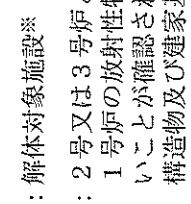 ：解体対象施設※
：２号又は３号炉
１号炉の放射性物
いことが確認され
構造物及び建家